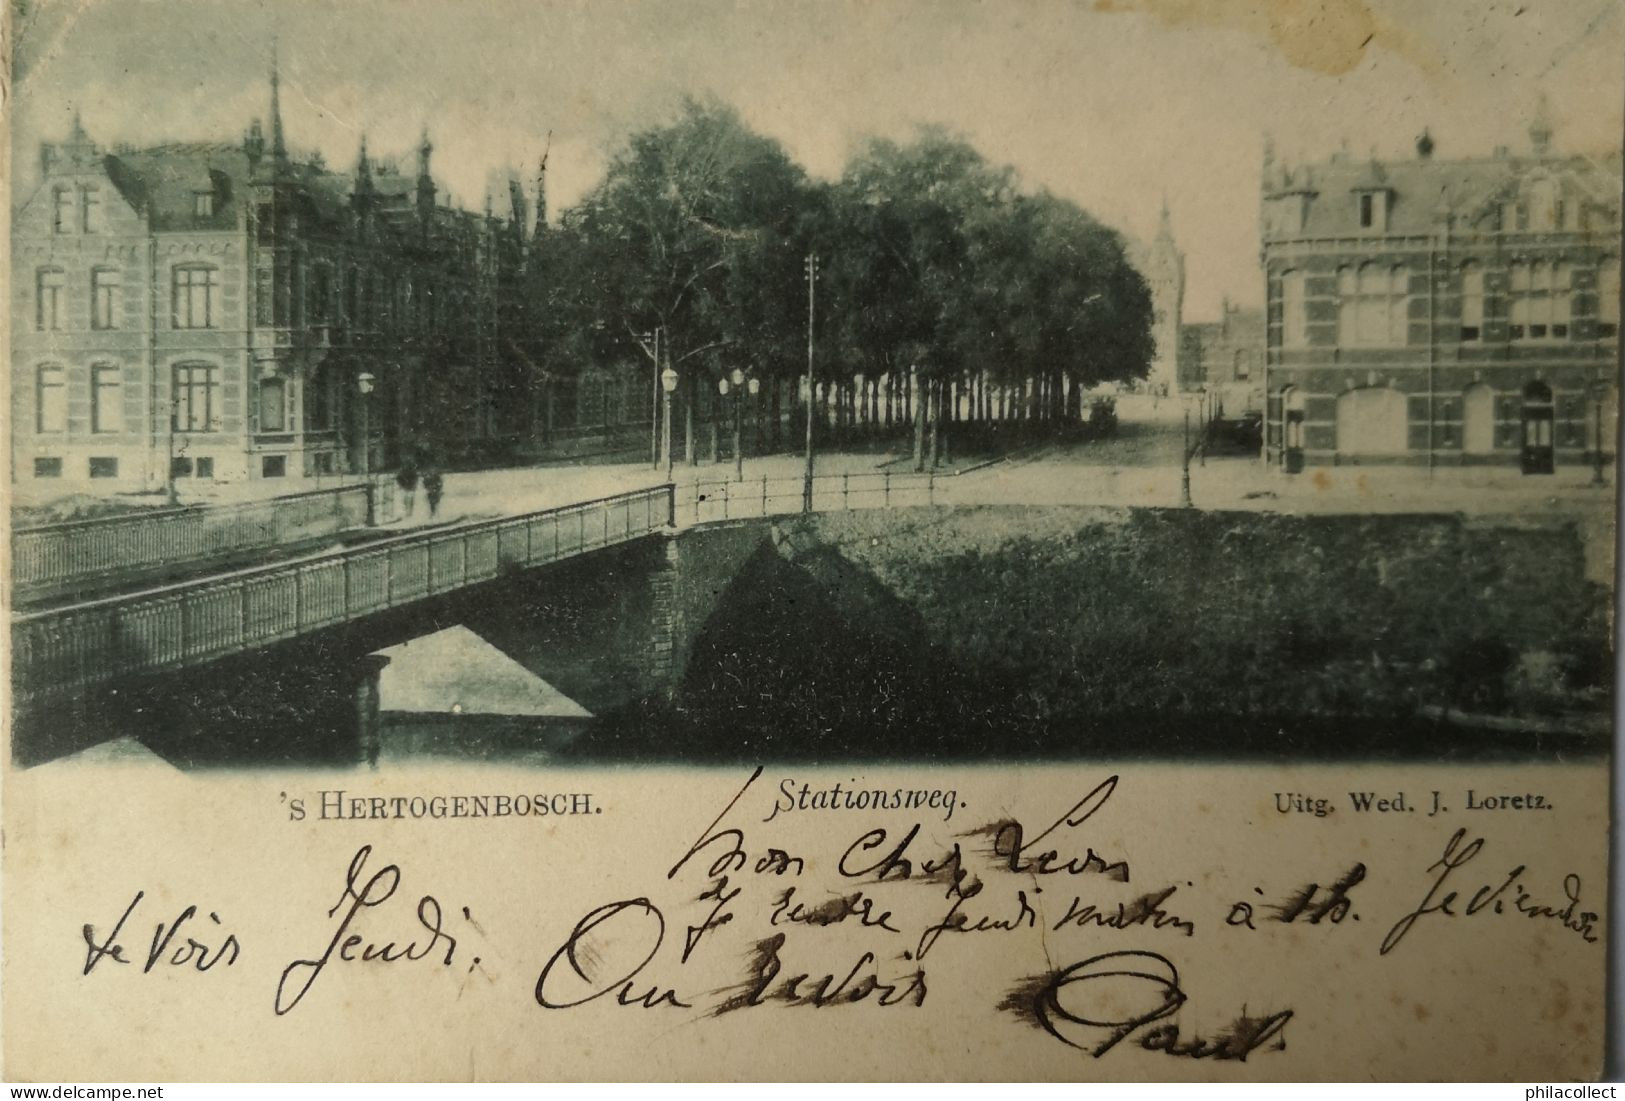 's HERTOGENBOSCH. Stationsweg. Uitg. Wed. J. Loretz.
Mon cher Leon
Je rentre Jeudi matin à 1 h. Je viendrai
te voir Jeudi.
Au revoir
Paul
philacollect